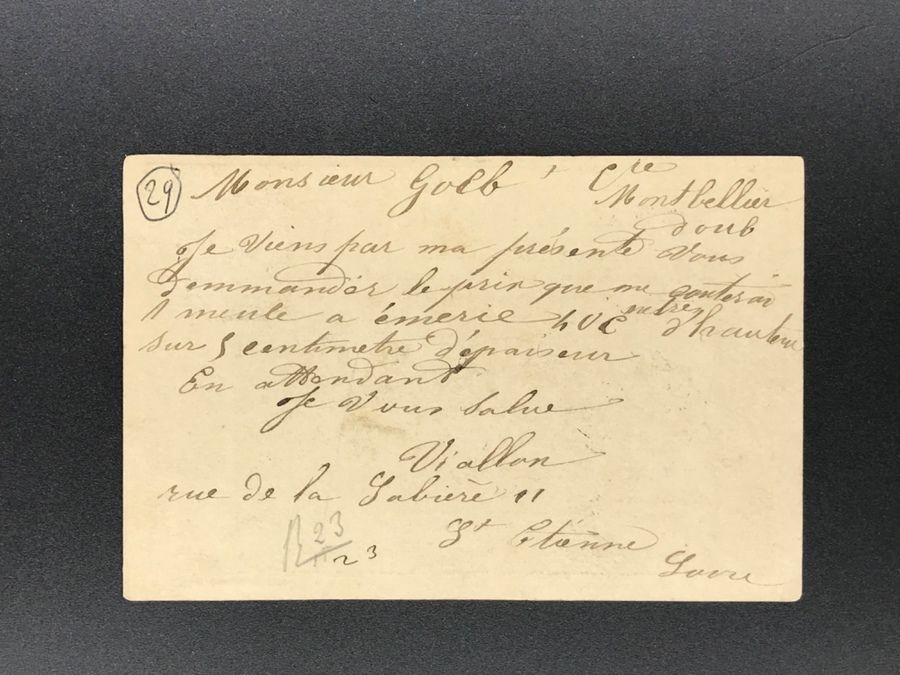 29
Monsieur Golb Cre
Montbellier
doub
Je Viens par ma présente Vous
demmander le prix que me couterai
1 meule a émerie d'hauteur
sur 5 centimetre d'épaiseur
En attendant
Je Vous Salue
Viallon
rue de la Sabiere 11
R 23
23
St Etienne
Loire